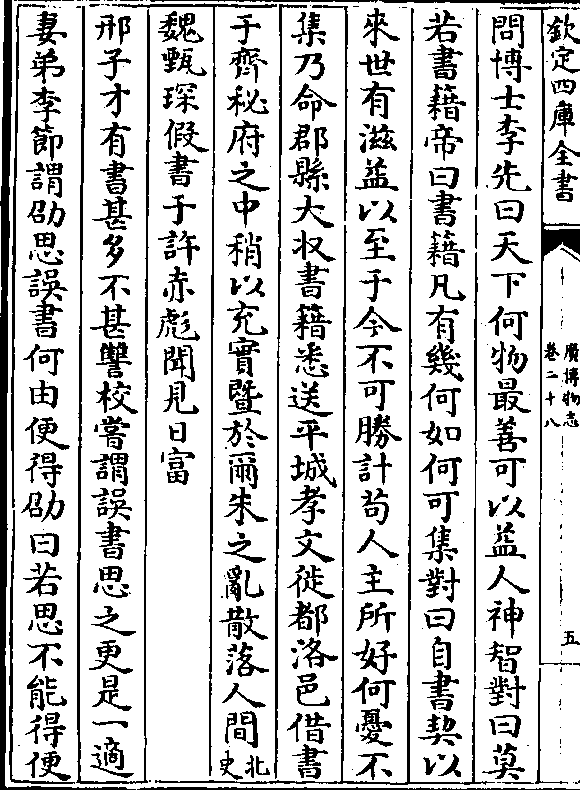 欽定四庫全書
廣博物志
卷二十八
五
問博士李先曰天下何物最善可以益人神智對曰莫
若書籍帝曰書籍凡有幾何如何可集對曰自書契以
來世有滋益以至于今不可勝計苟人主所好何憂不
集乃命郡縣大收書籍悉送平城孝文徙都洛邑借書
于齊秘府之中稍以充實暨於爾朱之亂散落人間北史
魏甄琛假書于許赤彪聞見日富
邢子才有書甚多不甚讐校嘗謂誤書思之更是一適
妻弟李節謂劭思誤書何由便得劭曰若思不能得便